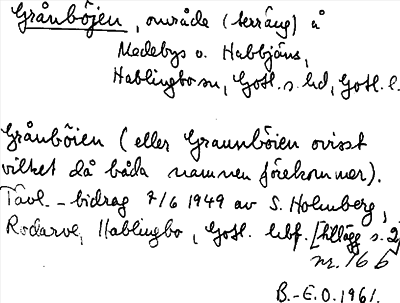 Grånböjen, område (terräng) å
Medebys o. Habbjäns,
Hablingbo sn, Gotl. s. hd, Gotl. l.
Grånböien (eller Graunböien ovisst
vilket då båda namnen förekommer).
Tävl.-bidrag 7/6 1949 av S. Holmberg,
Rodarve, Hablingbo, Gotl. [tillägg s. 2]
nr. 166
B.-E.O. 1961.